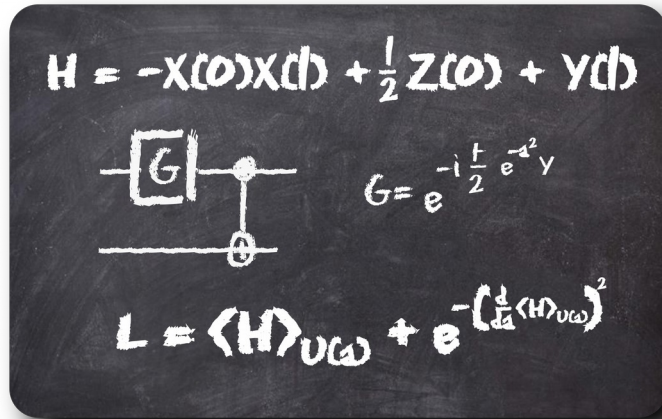 H = -X(0)X(1) + 1/2 Z(0) + Y(1)
G
G = e^{-i t/2 e^{-a^2} Y}
L = ⟨H⟩_{U(a)} + e^{-(d/da ⟨H⟩_{U(a)})^2}